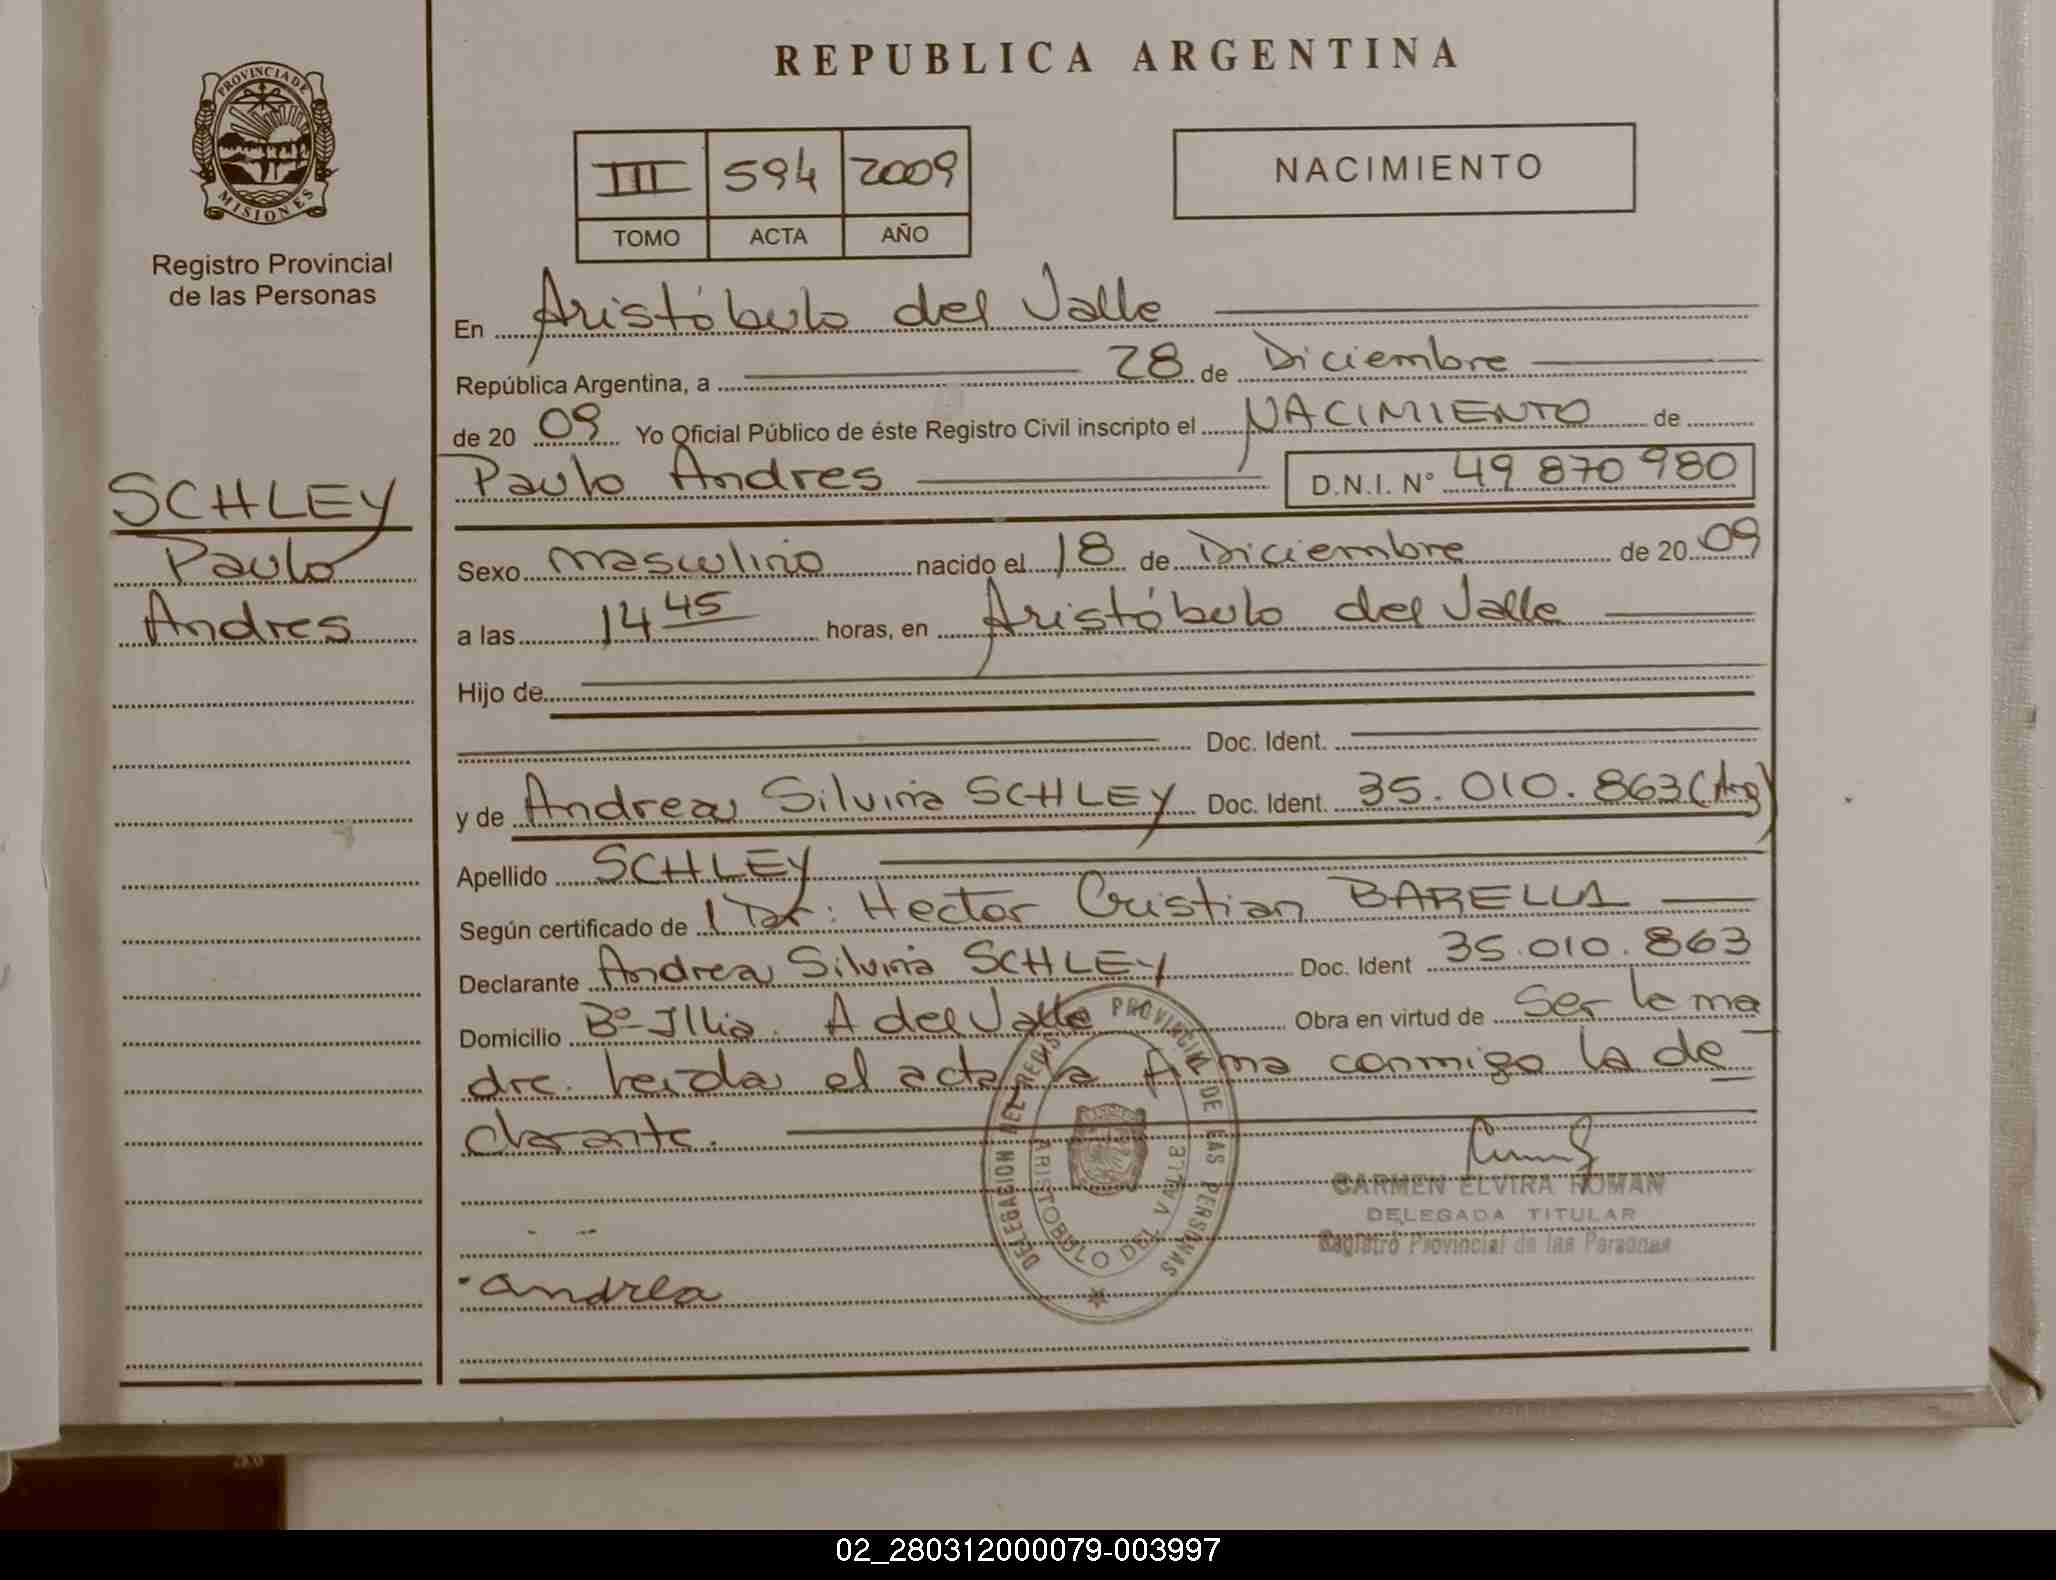 REPUBLICA ARGENTINA
PROVINCIA DE
MISIONES
Registro Provincial
de las Personas
III 594 2009
TOMO ACTA AÑO
NACIMIENTO
En Aristóbulo del Valle
República Argentina, a 28 de Diciembre
de 2009 Yo Oficial Público de éste Registro Civil inscripto el NACIMIENTO de
Paulo Andres D.N.I. Nº 49 870 980
SCHLEY
Paulo
Andres
Sexo masculino nacido el 18 de Diciembre de 2009
a las 14 45 horas, en Aristóbulo del Valle
Hijo de
Doc. Ident.
y de Andrea Silvina SCHLEY Doc. Ident. 35.010.863 (Arg)
Apellido SCHLEY
Según certificado de Dr: Hector Cristian
Declarante Andrea Silvina SCHLEY Doc. Ident 35.010.863
Domicilio Bº Illia. A del Valle Obra en virtud de Ser la ma
dre. leida el acta la firma conmigo la de
clarante.
DELEGACION DEL REGISTRO PROVINCIAL DE LAS PERSONAS
ARISTOBULO DEL VALLE
CARMEN ELVIRA ROMAN
DELEGADA TITULAR
Registro Provincial de las Personas
Andrea
02_280312000079-003997